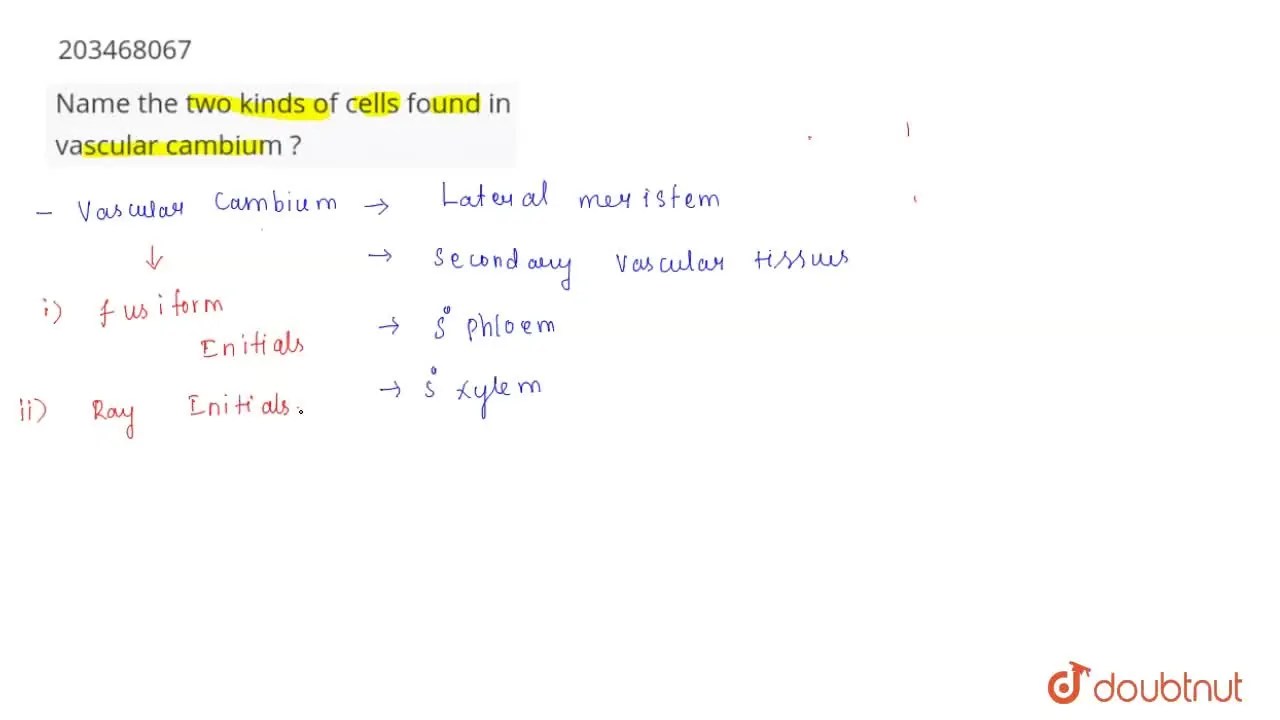 203468067
Name the two kinds of cells found in
vascular cambium ?
- Vascular Cambium → Lateral meristem
↓ → Secondary vascular tissues
i) fusiform
Enitials
→ S° phloem
→ S° xylem
ii) Ray Enitials.
doubtnut